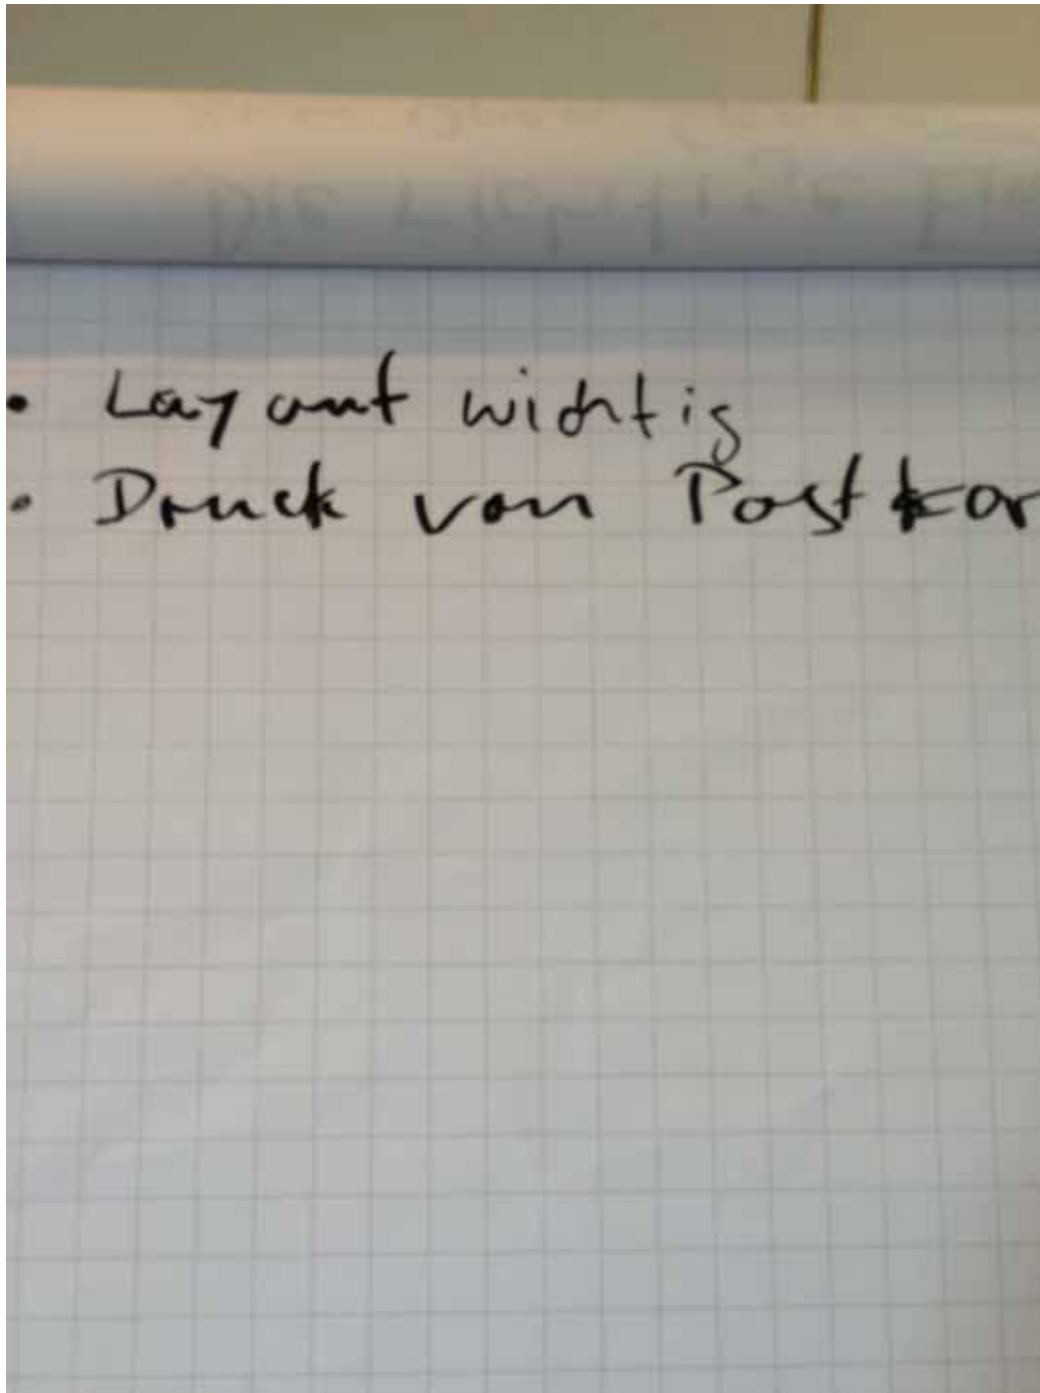 • Layout wichtig
• Druck von Postkar